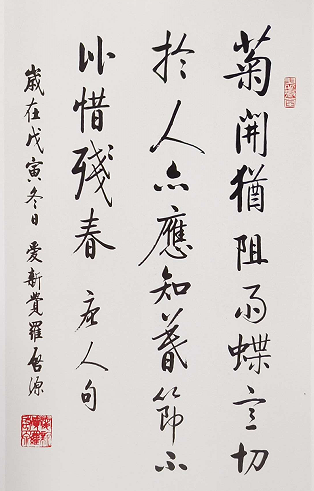 菊開猶阻雨蝶意切
於人亦應知暮節不
比惜殘春 唐人句
歲在戊寅冬日 愛新覺羅啓源